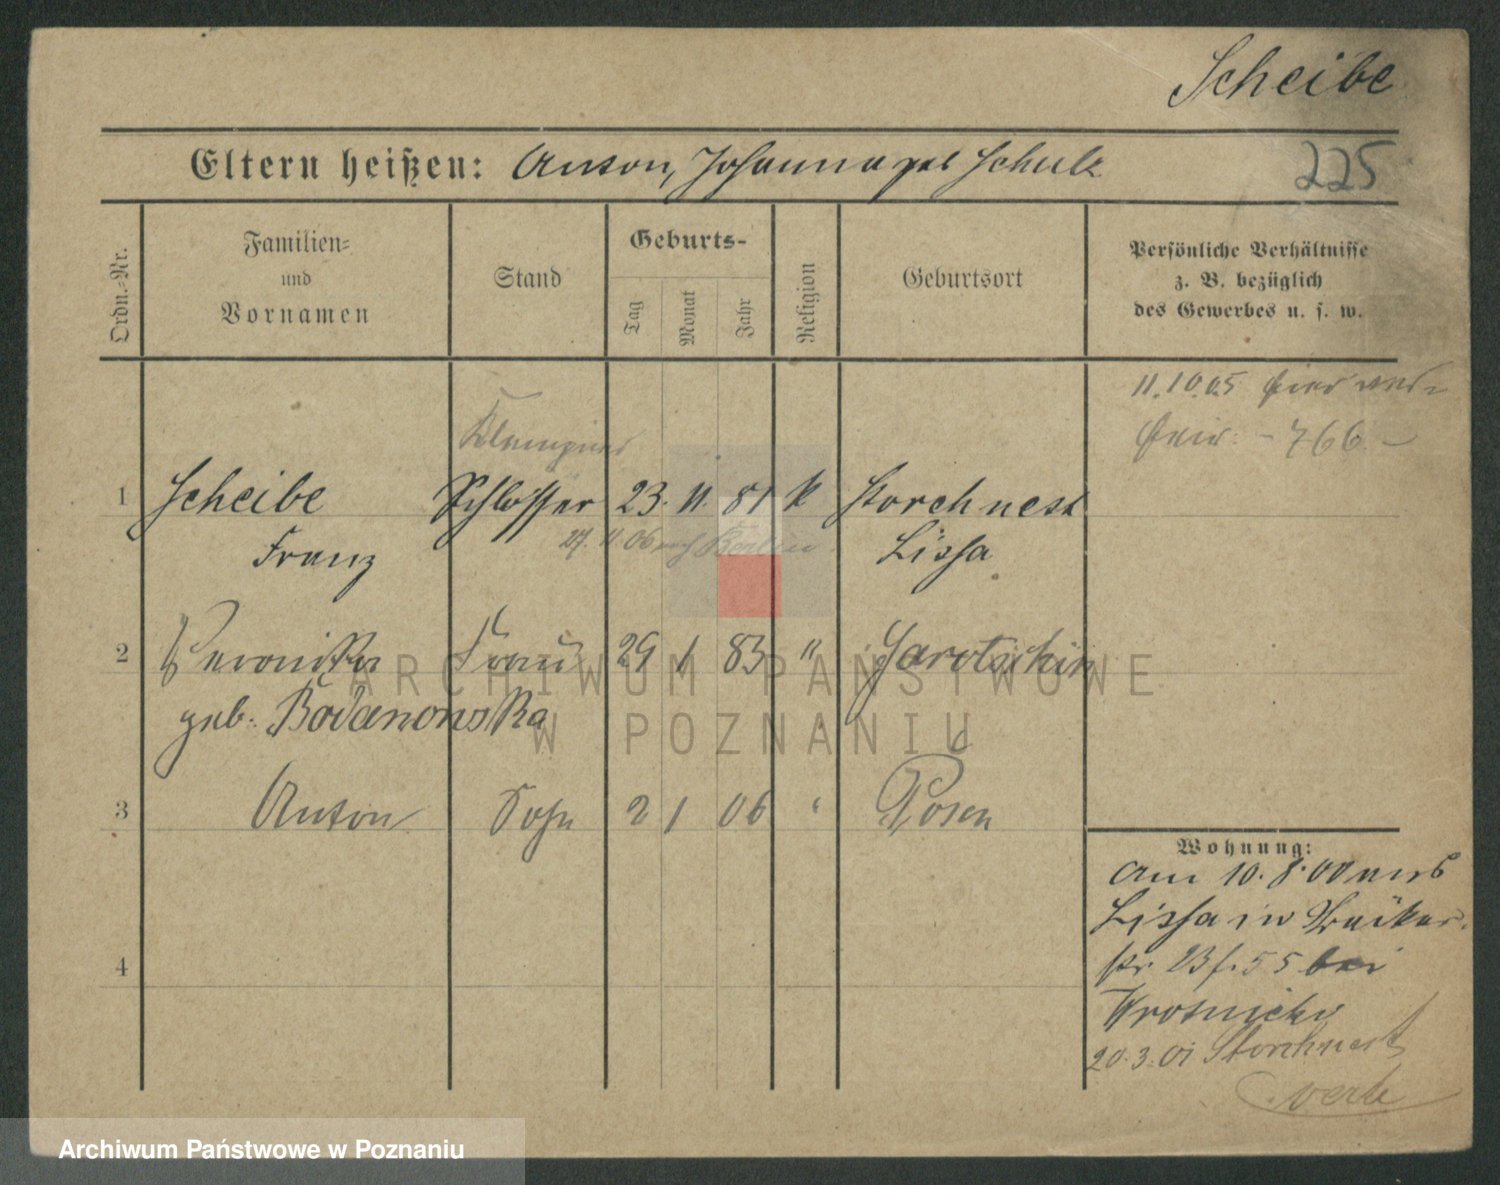 Scheibe
Eltern heißen: Anton, Johanna geb Schulz
225
Ordn.-Nr.
Familien-
und
Vornamen
Stand
Geburts-
Tag
Monat
Jahr
Religion
Geburtsort
Persönliche Verhältnisse
z. B. bezüglich
des Gewerbes u. s. w.
11.10.05
- 766 -
Klempner
1 Scheibe Schlosser 23. 11. 81 k Storchnest
27. 11 06 nach Berlin
Franz Lissa
2 Veronika Frau 29 1 83 " Jarotschin
geb. Bodanowska
3 Anton Sohn 2 1 06 " Posen
4
Wohnung:
Am 10. 8. 00 aus
Lissa in Bäcker
str 23 f. 55 bei
20.3.01 Storchnest
ARCHIWUM PAŃSTWOWE
W POZNANIU
Archiwum Państwowe w Poznaniu